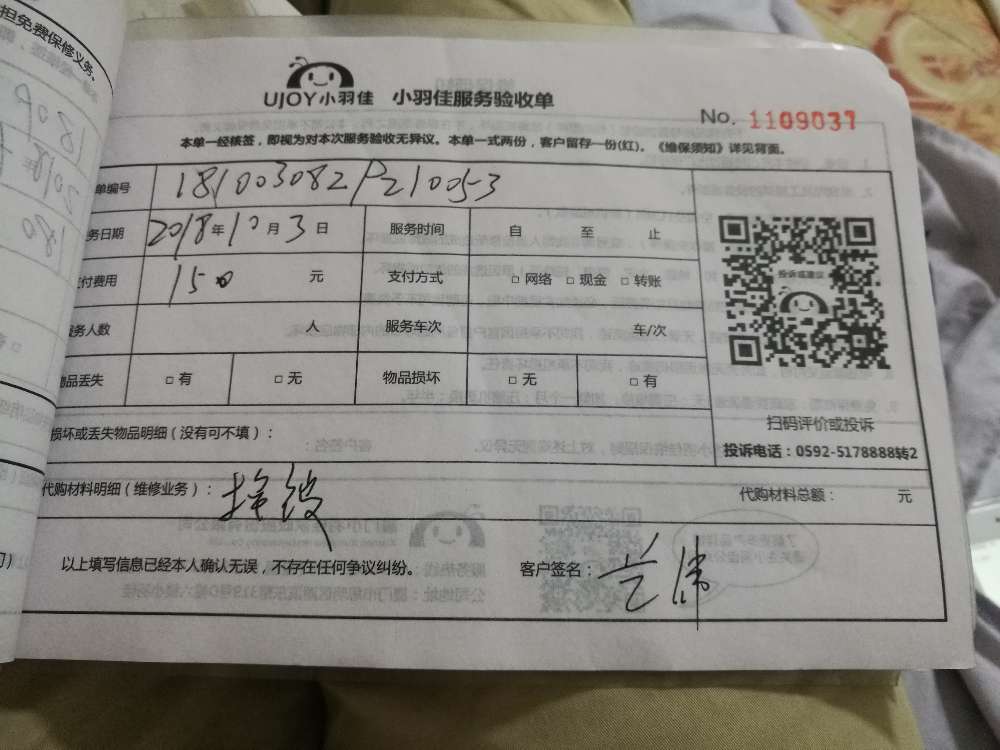 担免费保修义务、
UJOY小羽佳 小羽佳服务验收单
No. 1109037
本单一经核签，即视为对本次服务验收无异议。本单一式两份，客户留存一份(红)。《维保须知》详见背面。
单编号 181003082P210053
务日期 2018年10月3日 服务时间 自 至 止
支付费用 150 元 支付方式 □ 网络 □ 现金 □ 转账
服务人数 人 服务车次 车/次
物品丢失 □ 有 □ 无 物品损坏 □ 无 □ 有
投诉或建议
扫码评价或投诉
投诉电话：0592-5178888转2
损坏或丢失物品明细（没有可不填）：
代购材料明细（维修业务）： 代购材料总额： 元
以上填写信息已经本人确认无误，不存在任何争议纠纷。 客户签名：